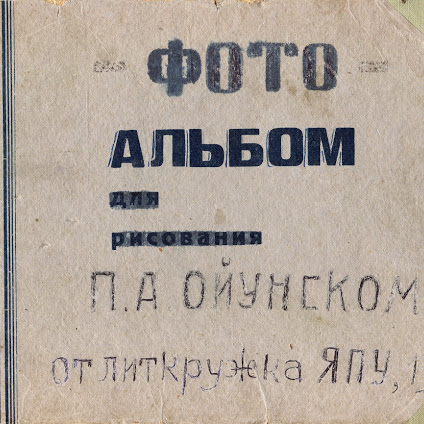 ФОТО
АЛЬБОМ
для
рисования
П.А ОЙУНСКОМ
от литкружка ЯПУ,